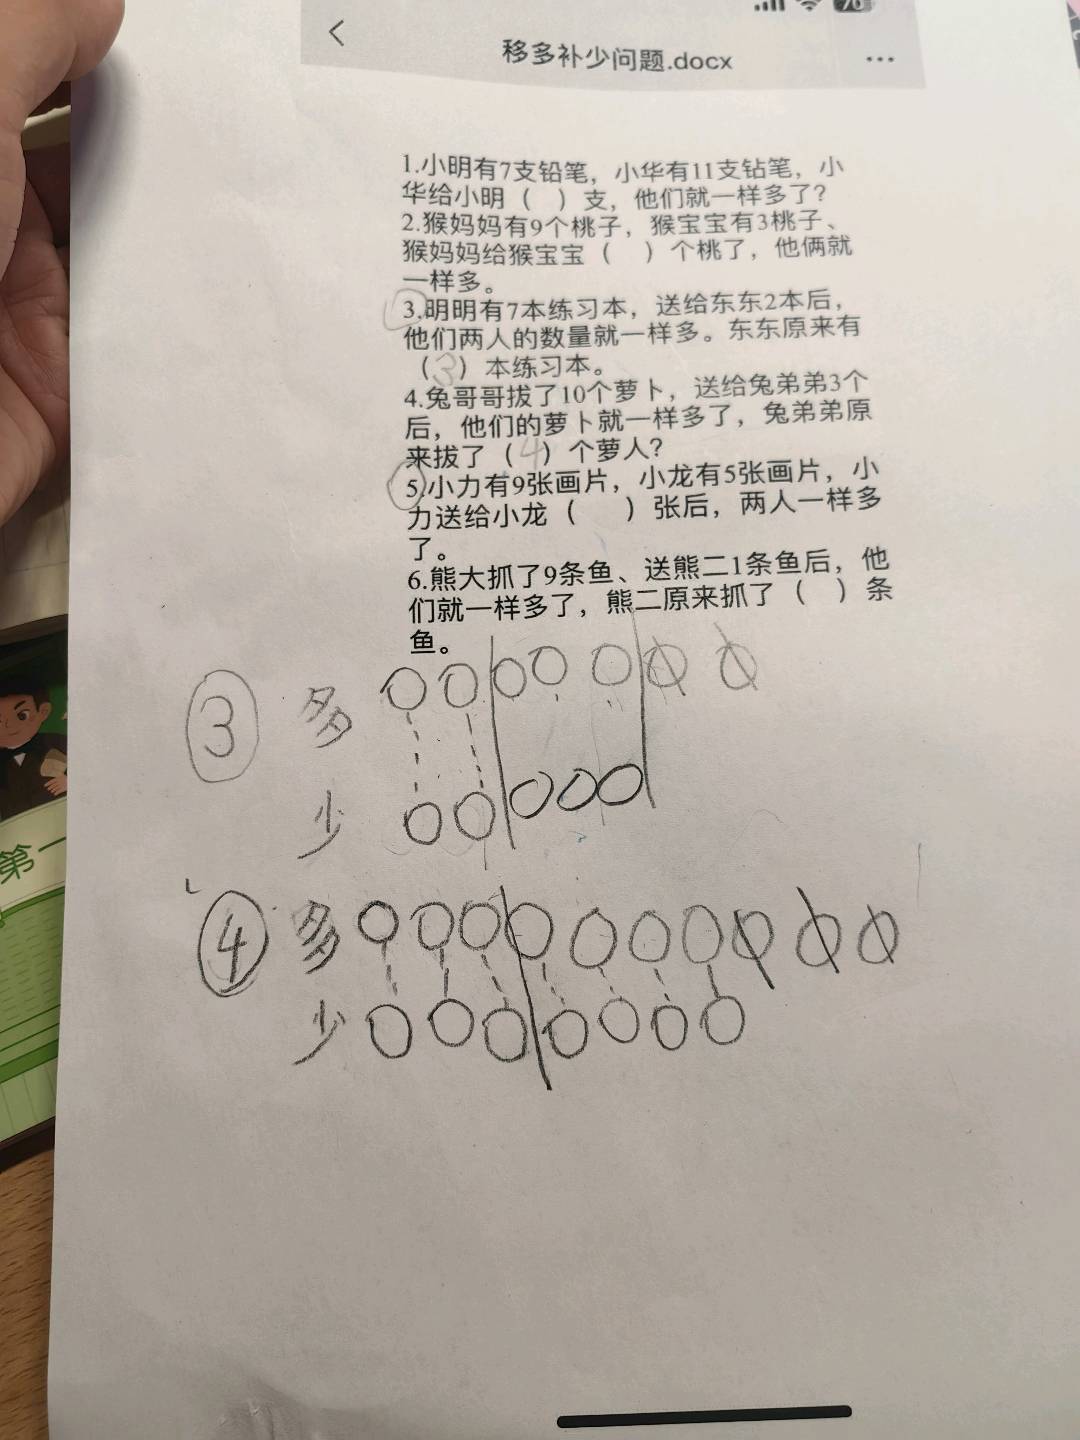 70
移多补少问题.docx
1.小明有7支铅笔，小华有11支钻笔，小
华给小明（ ）支，他们就一样多了？
2.猴妈妈有9个桃子，猴宝宝有3桃子、
猴妈妈给猴宝宝（ ）个桃了，他俩就
一样多。
3.明明有7本练习本，送给东东2本后，
他们两人的数量就一样多。东东原来有
（3）本练习本。
4.兔哥哥拔了10个萝卜，送给兔弟弟3个
后，他们的萝卜就一样多了，兔弟弟原
来拔了（4）个萝人？
5.小力有9张画片，小龙有5张画片，小
力送给小龙（ ）张后，两人一样多
了。
6.熊大抓了9条鱼、送熊二1条鱼后，他
们就一样多了，熊二原来抓了（ ）条
鱼。
③ 多
少
④ 多
少
第一